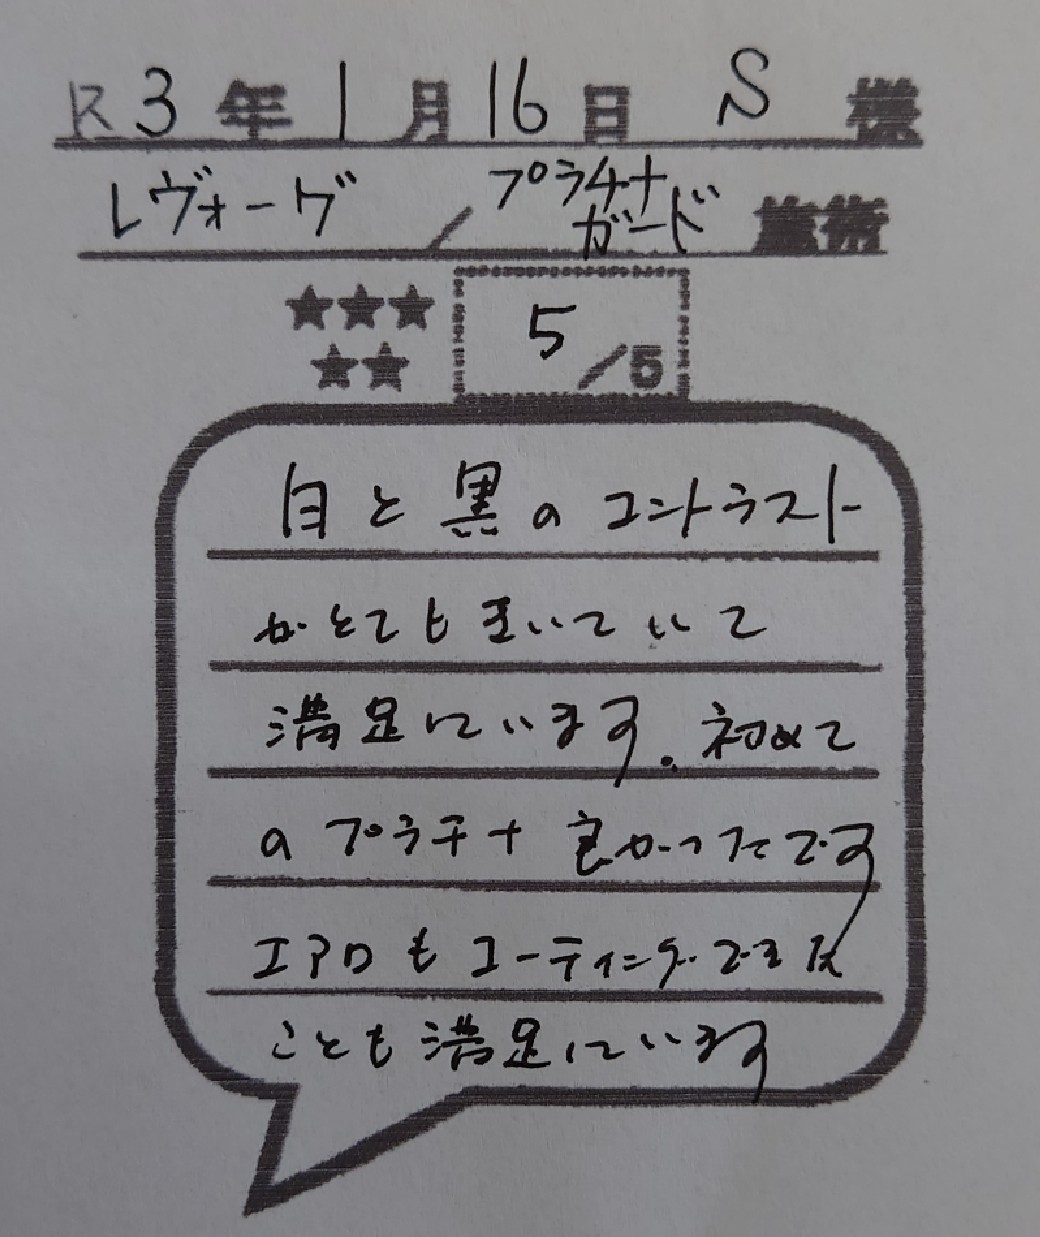 R3年1月16日 S 様
レヴォーグ / プラチナ
ガード 施術
★★★
★★
5/5
白と黒のコントラスト
がとても歪いていて
満足しています。初めて
のプラチナ良かったです
エアロもコーティングできた
ことも満足しています